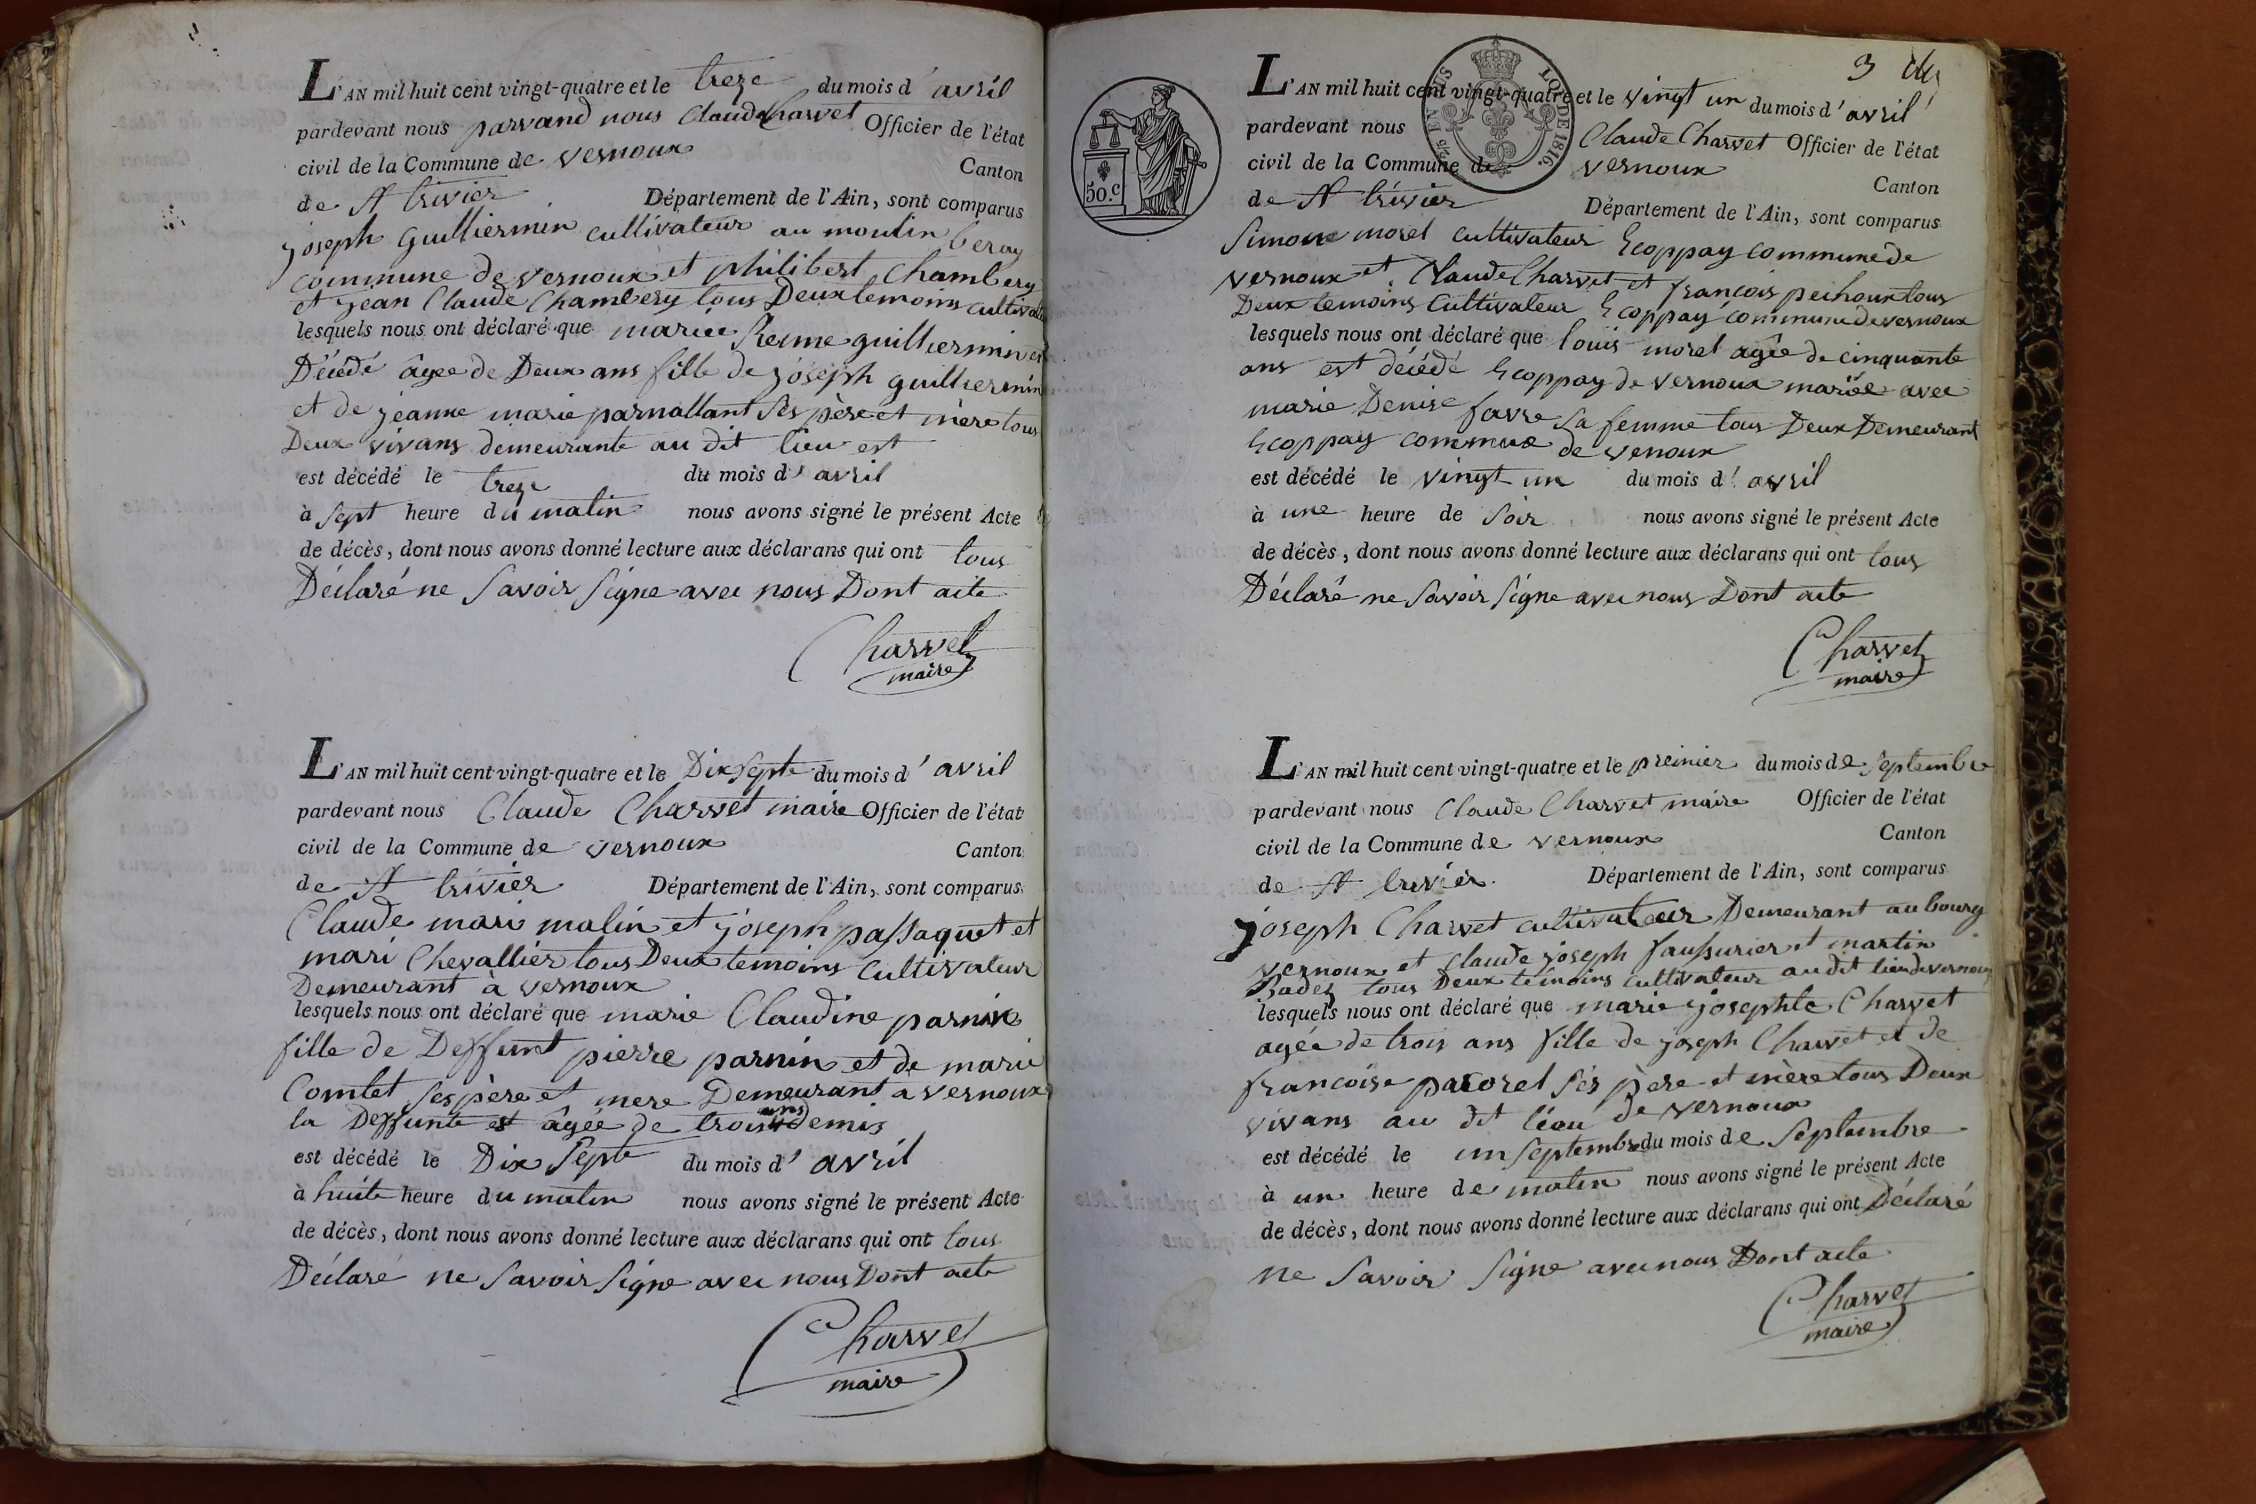 L'AN mil huit cent vingt-quatre et le treze du mois d' avril
pardevant nous parvand nous Claude Charvet Officier de l'état
civil de la Commune de vernoux Canton
de St trivier Département de l'Ain, sont comparus
joseph guilliermin cultivateur au moulin
commune de vernoux et philibert Chambery
et jean Claude Chambery tous Deux temoins
lesquels nous ont déclaré que mariee Reine guilliermin
Décédé âgee de Deux ans fille de joseph guilliermin
et de jeanne marie parnallant Ses père et mère tous
Deux vivans demeurante au dit lieu est
est décédé le treze du mois d' avril
à Sept heure du matin nous avons signé le présent Acte
de décès, dont nous avons donné lecture aux déclarans qui ont tous
Déclaré ne Savoir Signe avec nous Dont acte
Charvet
maire
L'AN mil huit cent vingt-quatre et le Dix Septe du mois d' avril
pardevant nous Claude Charvet maire Officier de l'état
civil de la Commune de vernoux Canton
de St trivier Département de l'Ain, sont comparus
Claude mari malin et joseph passaquet et
mari Chevallier tous Deux temoins cultivateur
Demeurant à vernoux
lesquels nous ont déclaré que marie Claudine parnin
fille de Deffunt pierre parnin et de marie
Comtet Ses père et mere Demeurant a vernoux
la Deffunte est âgée de trois ans demis
est décédé le Dix Septe du mois d' avril
à huite heure du matin nous avons signé le présent Acte
de décès, dont nous avons donné lecture aux déclarans qui ont tous
Déclaré ne Savoir Signe avec nous Dont acte
Charvet
maire
3
50.c
LOI DE 1816.
L'AN mil huit cent vingt-quatre et le vingt un du mois d' avril
pardevant nous Claude Charvet Officier de l'état
civil de la Commune de vernoux Canton
de St trivier Département de l'Ain, sont comparus
Simone morel cultivateur Ecoppay commune de
vernoux et Claude Charvet et françois pechoux tous
Deux temoins Cultivateur Ecoppay commune de vernoux
lesquels nous ont déclaré que louis morel agée de cinquante
ans est décédé Ecoppay de vernoux mariée avec
marie Denise favre Sa femme tous Deux Demeurant
Ecoppay commux de venoux
est décédé le vingt un du mois d' avril
à une heure de Soir nous avons signé le présent Acte
de décès, dont nous avons donné lecture aux déclarans qui ont tous
Déclaré ne Savoir Signe avec nous Dont acte
Charvet
maire
L'AN mil huit cent vingt-quatre et le preinier du mois de Septembre
pardevant nous Claude Charvet maire Officier de l'état
civil de la Commune de vernoux Canton
de St trivier Département de l'Ain, sont comparus
joseph Charvet cultivateur Demeurant au bourg
vernoux et Claude joseph faussurier et martin
Badez tous Deux temoins cultivateur au dit lieu de vernoux
lesquels nous ont déclaré que marie josephte Charvet
agée de trois ans fille de joseph Charvet et de
francoise pacoret Ses père et mère tous Deux
vivans au dit lieu de vernoux
est décédé le un Septembre du mois de Septembre
à un heure de matin nous avons signé le présent Acte
de décès, dont nous avons donné lecture aux déclarans qui ont Déclaré
ne Savoir Signe avec nous Dont acte
Charvet
maire